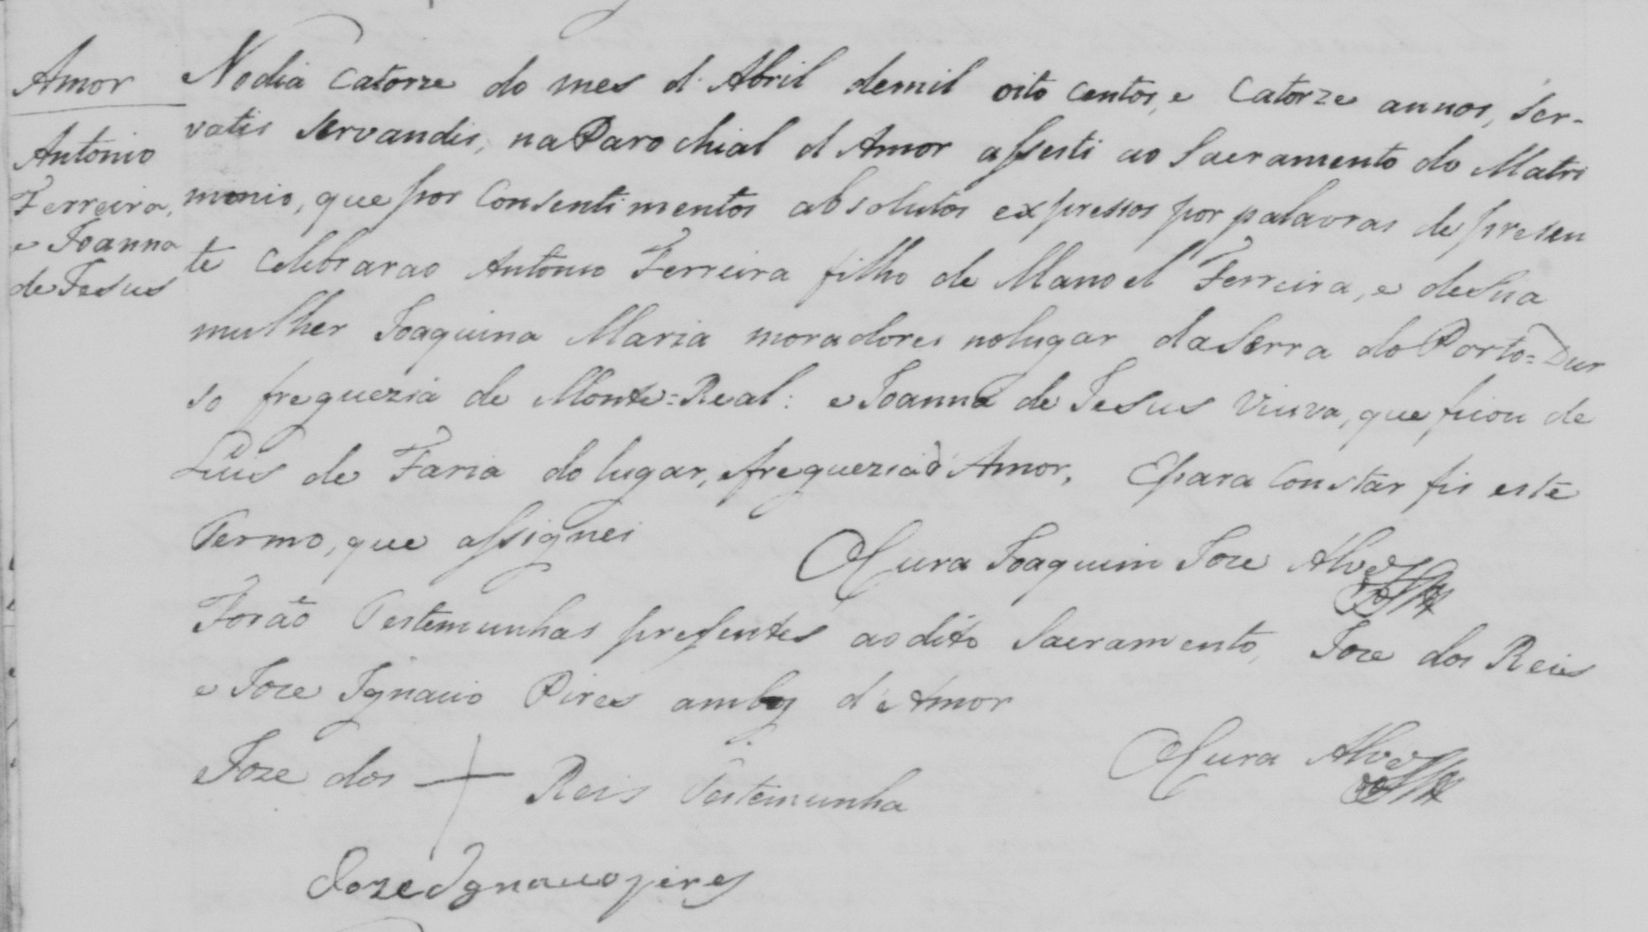 Amor
Antonio
Ferreira,
e Joanna
de Jesus
No dia Catorze do mes d. Abril de mil oito centos, e Catorze annos, Ser-
vatis Servandis, na Parochial d Amor assesti ao Sacramento do Matri
monio, que por Consentimentos absolutos expressos por palavras de presen
te Celebrarao Antonio Ferreira filho de Manoel Ferreira, e de Sua
mulher Joaquina Maria moradores no lugar da Serra do Porto=Dur
so freguezia de Monte=Real: e Joanna de Jesus Viuva, que ficou de
Luis de Faria do lugar, e freguezia d'Amor, E para Constar fis este
Termo, que assignei
O Cura Joaquim Joze Alves
Forão Testemunhas presentes ao dito Sacramento, Joze dos Reis
e Joze Ignacio Pires ambos d'Amor
O Cura Alves
Joze dos + Reis Testemunha
Joze Ignacio pires